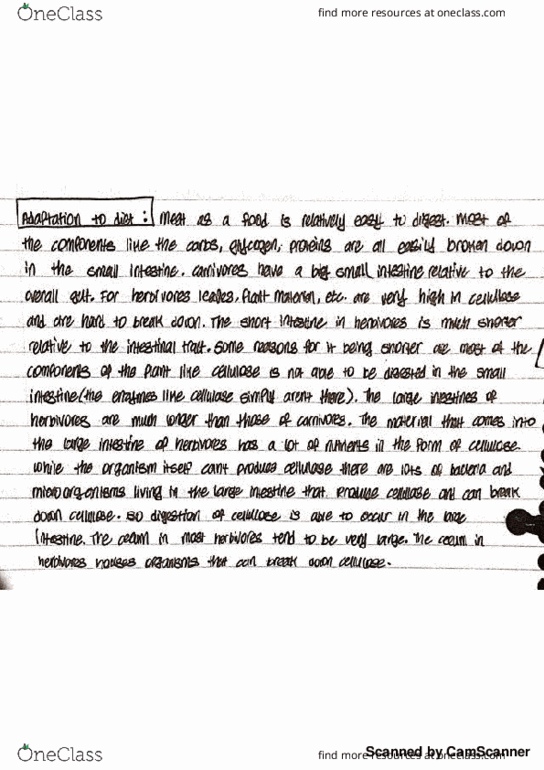 OneClass
find more resources at oneclass.com
Adaptation to diet : Meat as a food is relatively easy to digest. Most of
the components like the carbs, glycogen, proteins are all easily broken down
in the small intestine. Carnivores have a big small intestine relative to the
overall gut. For herbivores leaves, plant material, etc. are very high in cellulose
and are hard to break down. The short intestine in herbivores is much shorter
relative to the intestinal tract. Some reasons for it being shorter are most of the
components of the plant like cellulose is not able to be digested in the small
intestine (the enzymes like cellulase simply arent there). The large inestines of
herbivores are much longer than those of carnivores. The material that comes into
the large intestine of herbivores has a lot of nutrients in the form of cellulose.
While the organism itself cant produce cellulase there are lots of bacteria and
microorganisms living in the large inestine that produce cellulase and can break
down cellulose. So digestion of cellulose is able to occur in the large
intestine. The cecum in most herbivores tend to be very large. The cecum in
herbivores houses organisms that can break down cellulose.
OneClass
find more resources at oneclass.com
Scanned by CamScanner